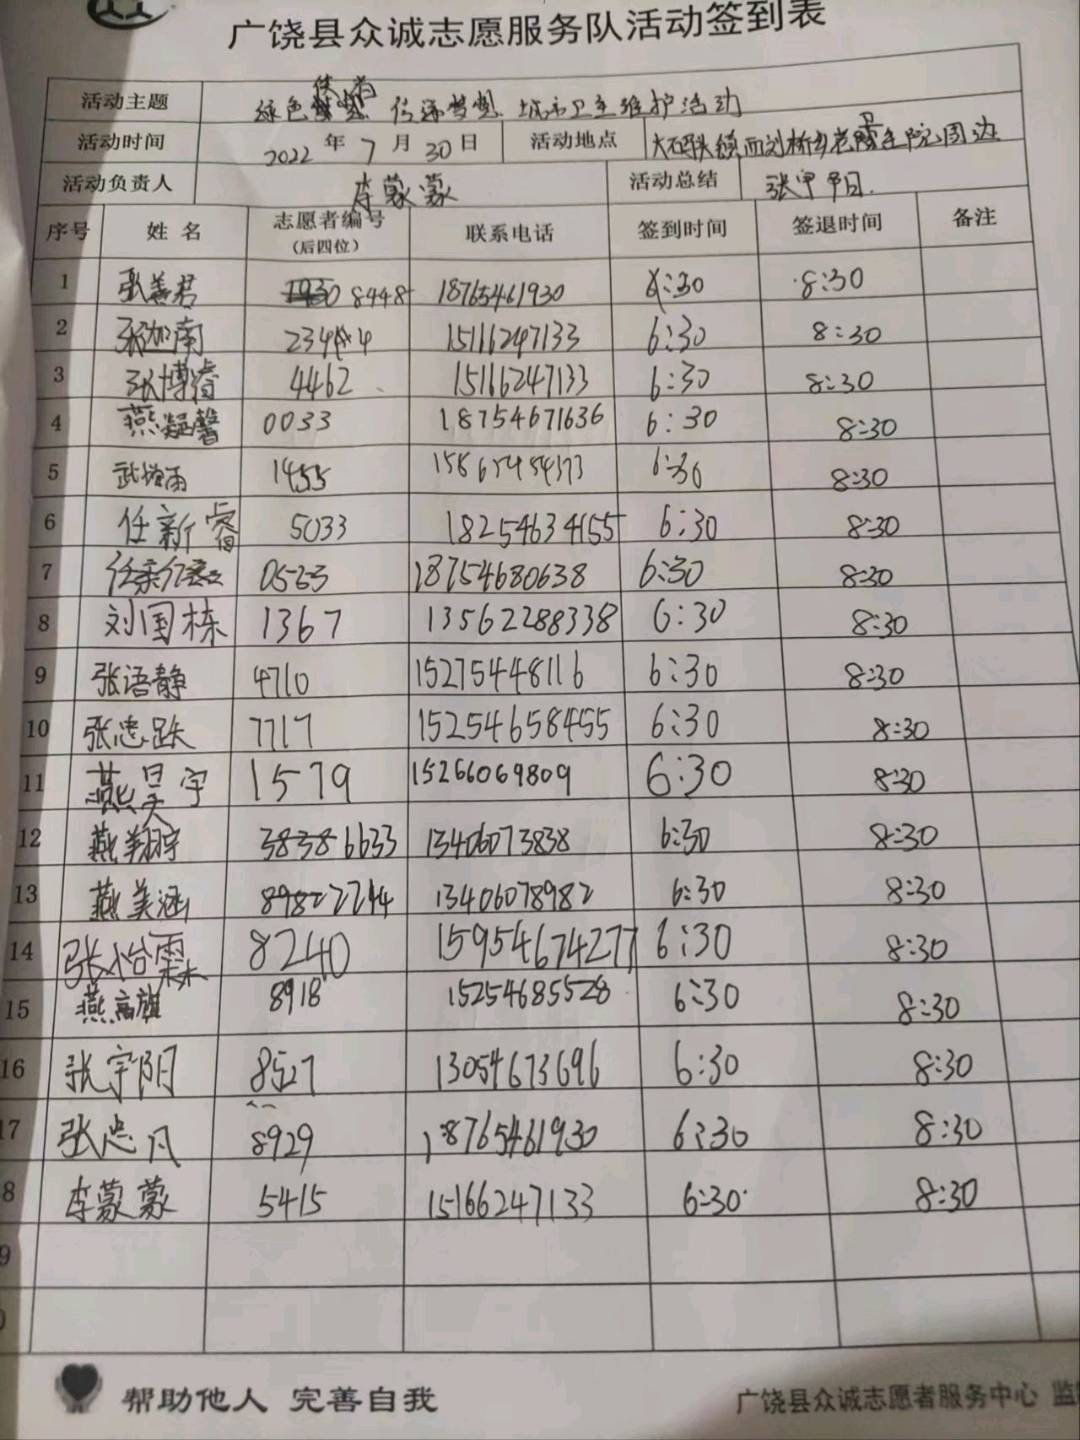 广饶县众诚志愿服务队活动签到表
活动主题 绿色 使者 传递梦想 城市卫生维护活动
活动时间 2022 年 7 月 30 日 活动地点 大码头镇西刘桥乡老 医院周边
活动负责人 李蒙蒙 活动总结 张宇阳
序号 姓名 志愿者编号 (后四位) 联系电话 签到时间 签退时间 备注
1 张善君 8448 18765461930 6:30 8:30
2 张迦南 234 4 15116247133 6:30 8:30
3 张博睿 4462 15166247133 6:30 8:30
4 燕凝馨 0033 18754671636 6:30 8:30
5 武 雨 1455 6:30 8:30
6 任新睿 5033 18254634155 6:30 8:30
7 任 0563 18754680638 6:30 8:30
8 刘国栋 1367 13562288338 6:30 8:30
9 张语静 4710 15275448116 6:30 8:30
10 张忠跃 7717 15254658455 6:30 8:30
11 燕昊宇 1579 15266069809 6:30 8:30
12 燕翔宇 3838 6633 13406073838 6:30 8:30
13 燕美涵 8982 2244 13406078982 6:30 8:30
14 张怡霖 8240 15954674277 6:30 8:30
15 燕高雄 8918 15254685528 6:30 8:30
16 张宇阳 8527 13054673696 6:30 8:30
17 张忠凡 8929 18765461930 6:30 8:30
8 李蒙蒙 5415 15166247133 6:30 8:30
9
0
帮助他人 完善自我 广饶县众诚志愿者服务中心 监